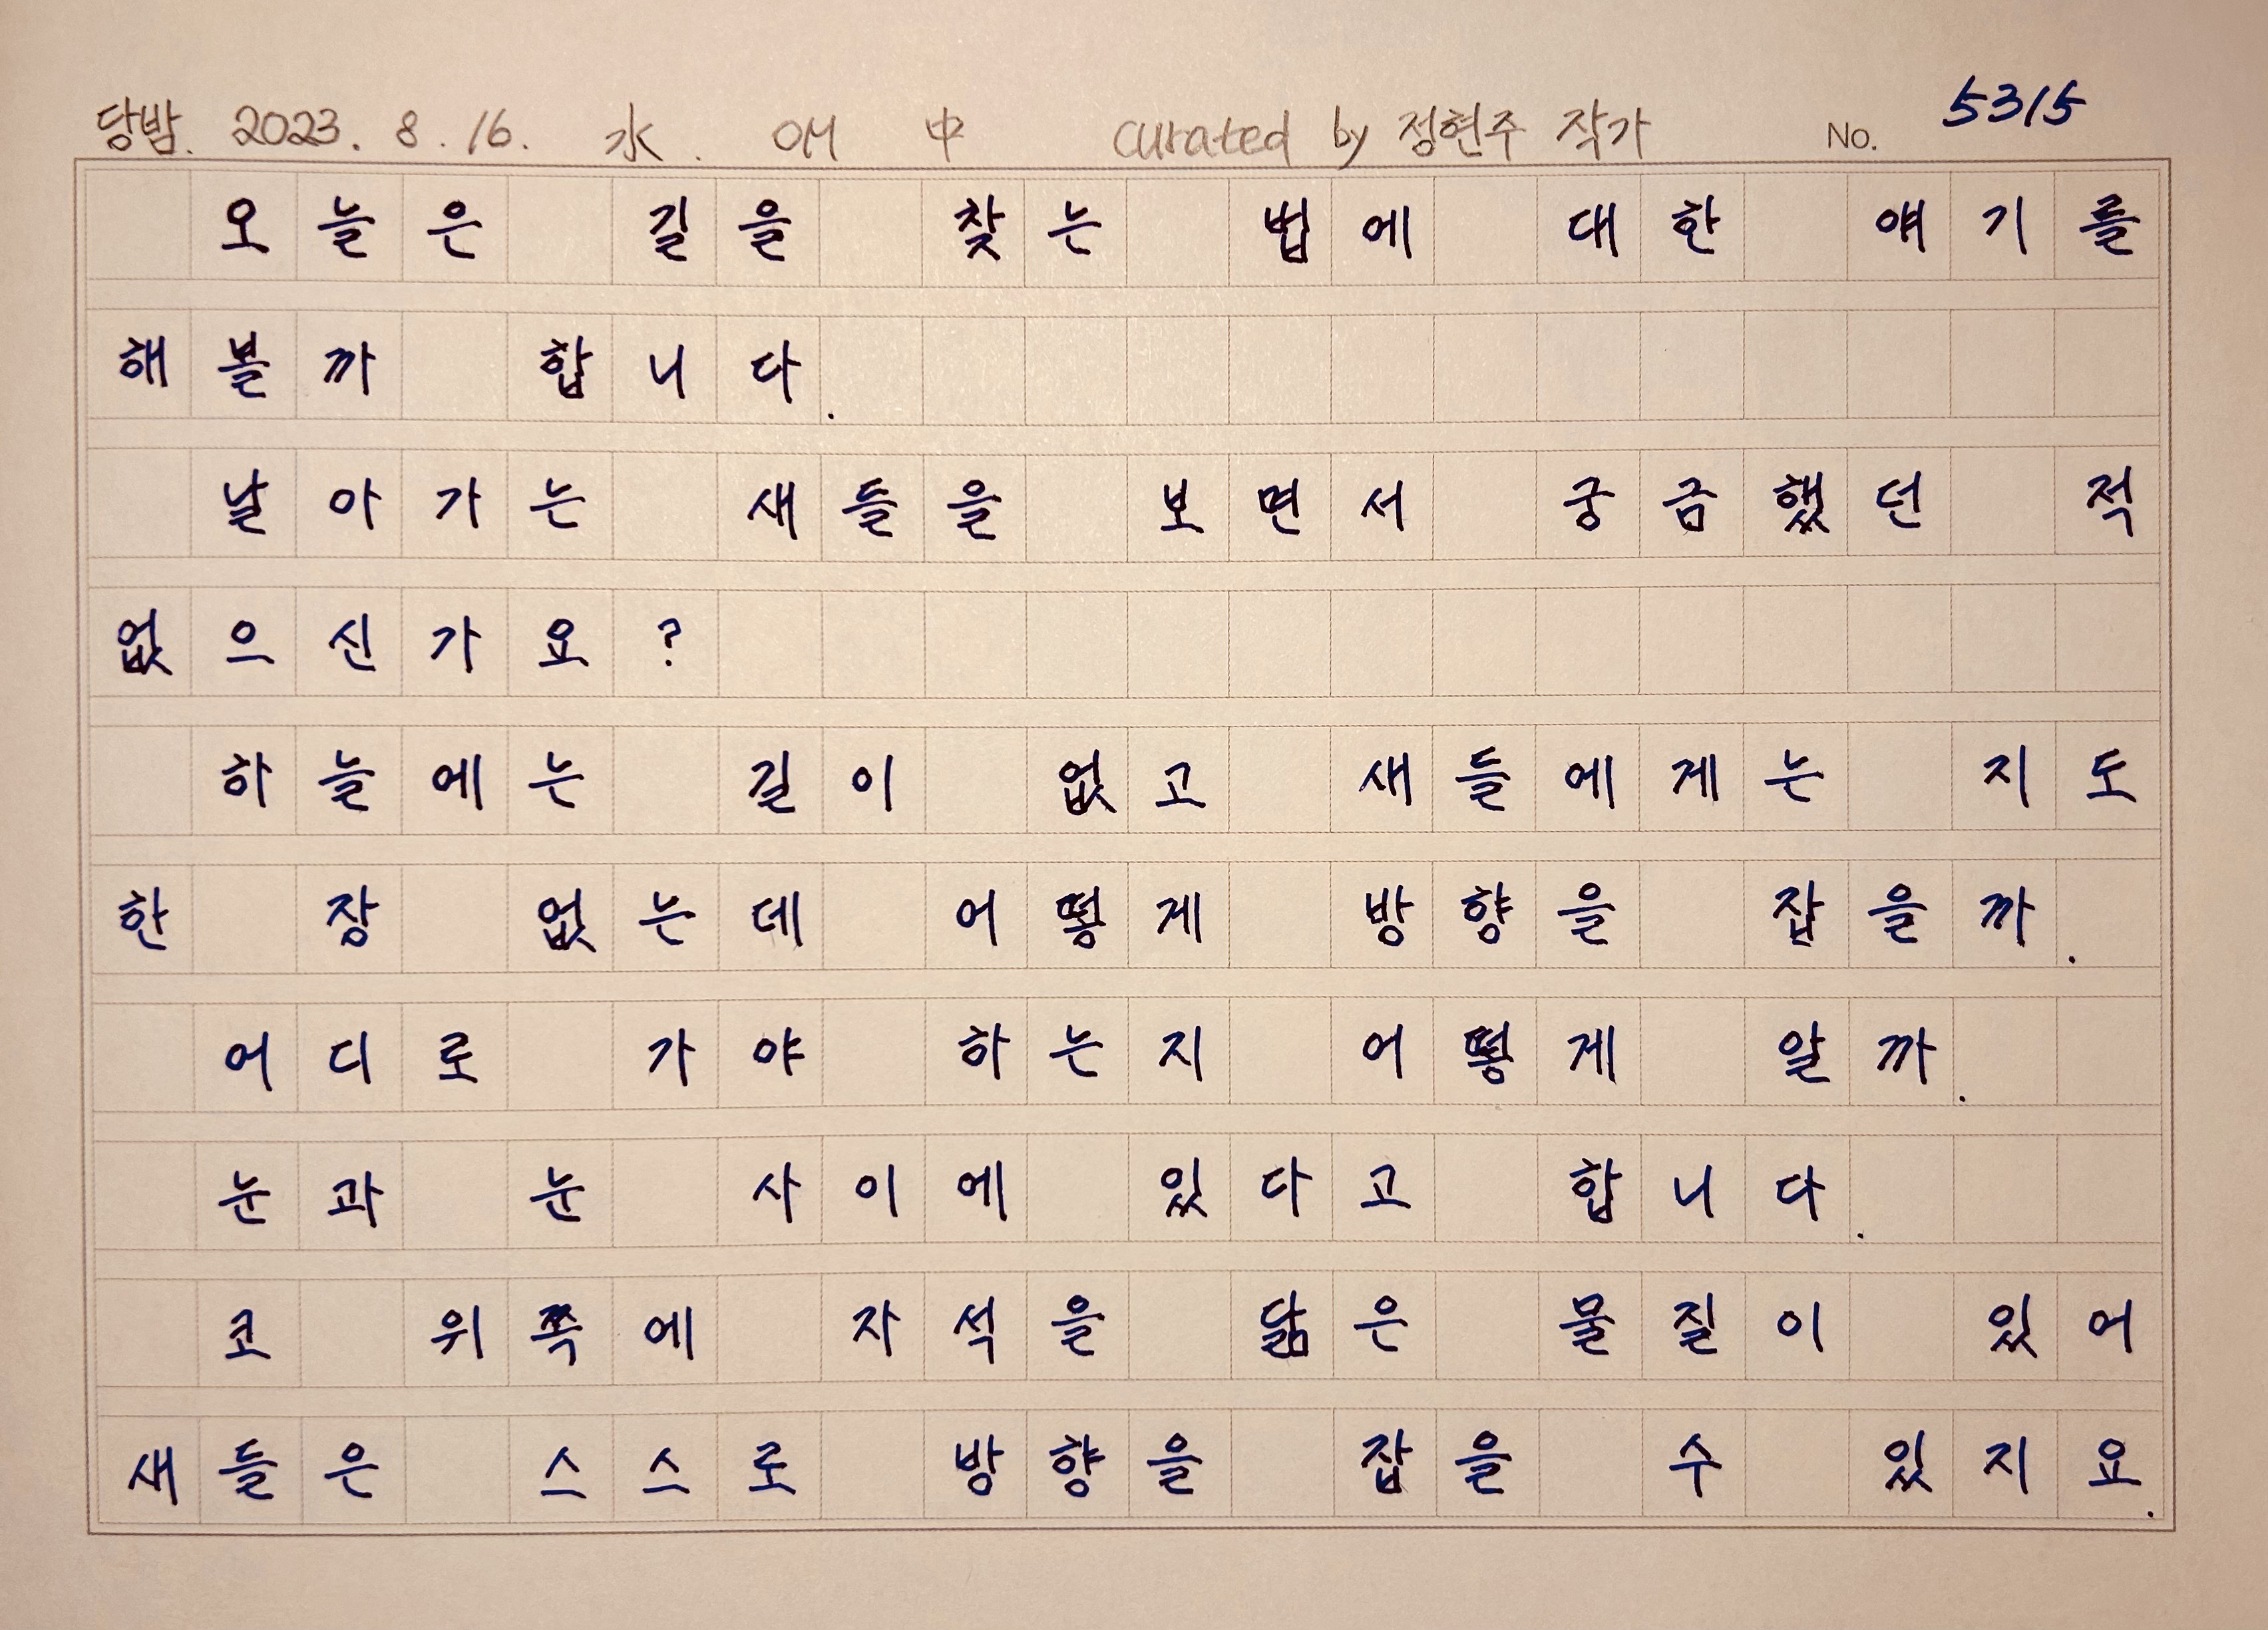 당밤. 2023. 8. 16. 水. OM 中 curated by 정현주 작가 No. 5315
오늘은 길을 찾는 법에 대한 얘기를
해볼까 합니다.
날아가는 새들을 보면서 궁금했던 적
없으신가요?
하늘에는 길이 없고 새들에게는 지도
한 장 없는데 어떻게 방향을 잡을까.
어디로 가야 하는지 어떻게 알까.
눈과 눈 사이에 있다고 합니다.
코 위쪽에 자석을 닮은 물질이 있어
새들은 스스로 방향을 잡을 수 있지요.